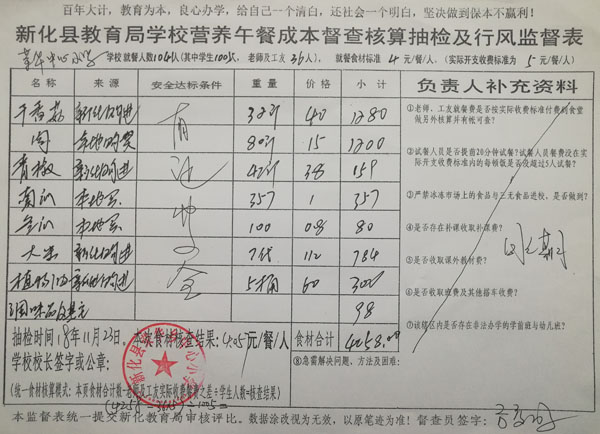 百年大计，教育为本，良心办学，给自己一个清白，还社会一个明白，坚决做到保本不赢利！
新化县教育局学校营养午餐成本督查核算抽检及行风监督表
中心小学 学校就餐人数1041人(其中学生1005人，老师及工友36人)，就餐食材标准4元/餐/人，(实际开支收费标准为5元/餐/人)
名称 来源 安全达标条件 重量 价格 小计 负责人补充资料
干香菇 新化购进 32斤 40 1280
肉 本地购买 80斤 15 1200
青椒 新化购进 42斤 38 159
本地买 357 1 357
本地买 100 08 80
大米 新化购进 7代 112 784
植物油 新化购进 5桶 60 300
调味品 98
有 证 齐 全
①老师，工友就餐费是否按实际收费标准付费到食堂做另外核算并有帐可查？
②试餐人员是否提前20分钟试餐？试餐人员餐费没在实际开支收费标准内的每顿饭是否没超过5人试餐？
③严禁冰冻市场上的食品与三无食品进校，是否做到？
④是否存在补课收取补课费？
⑤是否收取课外教材费？
⑥是否收取班费及其他搭车收费？
⑦该辖区内是否存在非法办学的学前班与幼儿班？
抽检时间18年11月23日。本次食材核查结果：4.05元/餐/人 食材合计 4258.00
学校校长签字或公章：
⑧急需解决问题，方法及困难：
(统一食材核算模式：本页食材合计数-老师及工友实际收费餐费之差÷学生人数=核查结果)
本监督表统一提交新化教育局审核评比，数据涂改视为无效，以原笔迹为准！督查员签字：